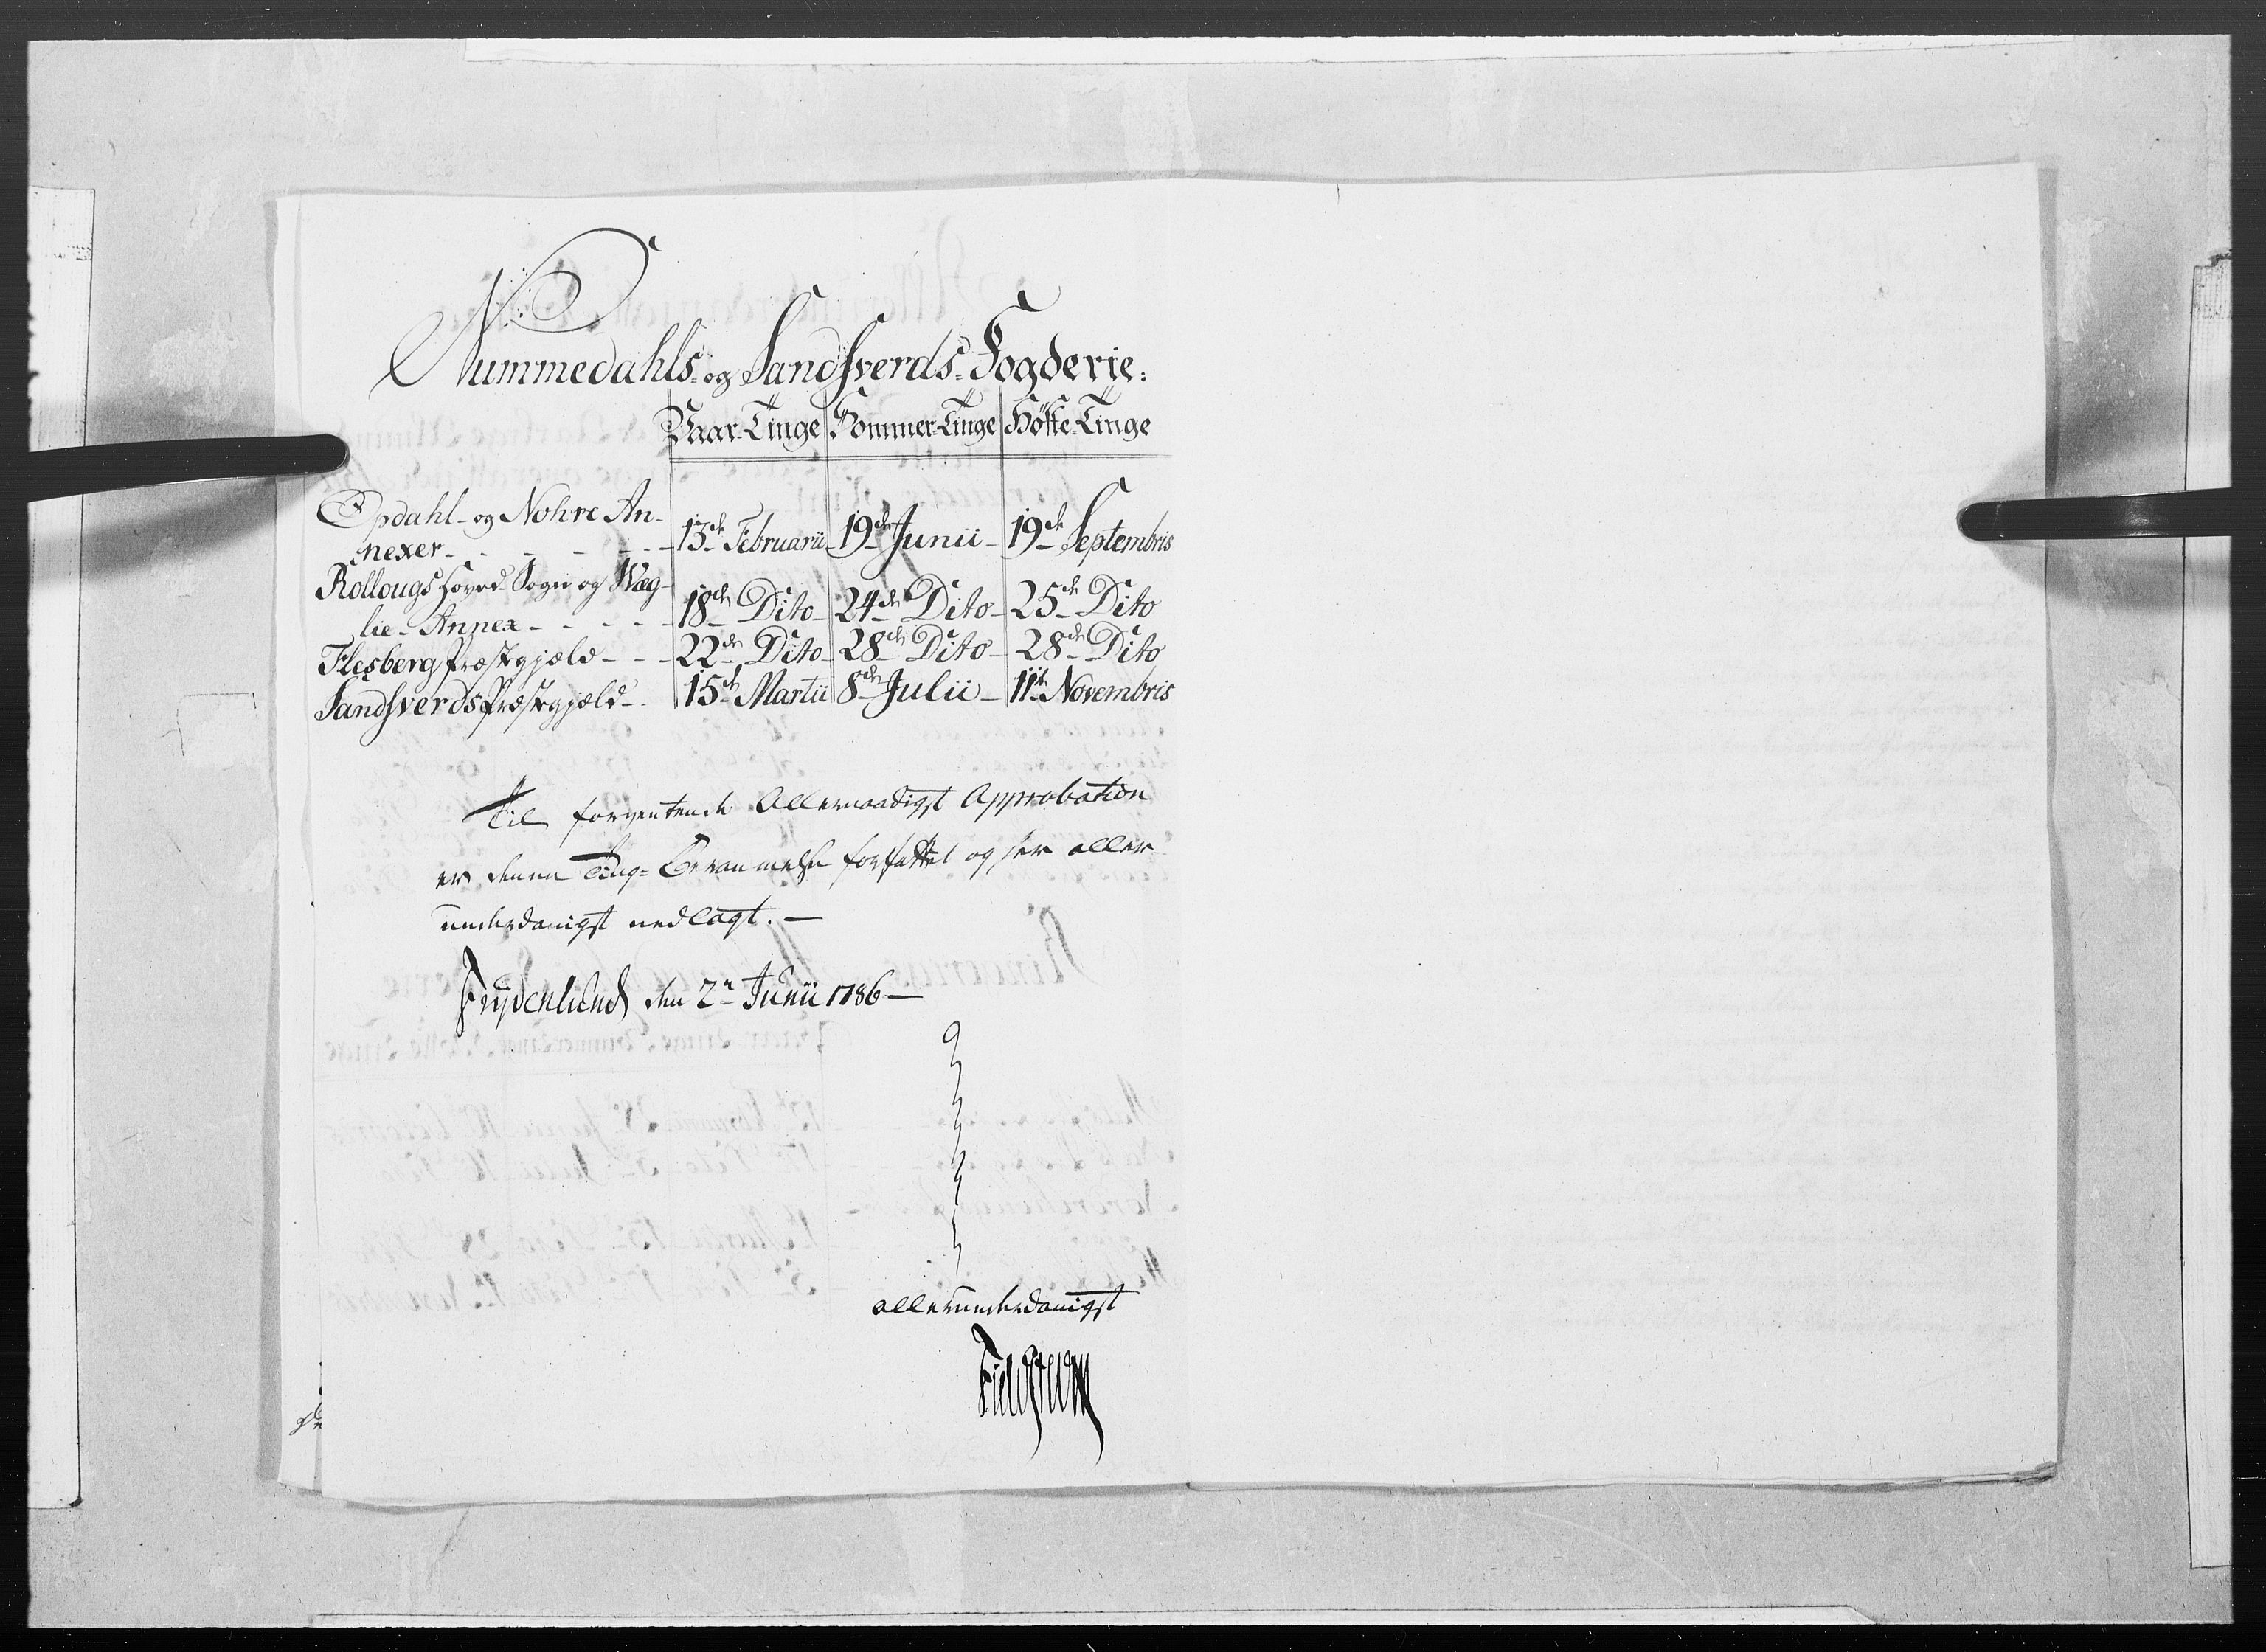 Nummedahls- og Sandsverds-Fogderie:
Vaar-Tinge Sommer-Tinge Høste-Tinge
Opdahl- og Nohre An-
nexer - - - - - - 13de Februarii 19de Junii - 19de Septembris
Rollougs Hoved-Sogn og Væg-
lie-Annex - - - - - 18de Dito - 24de Dito - 25de Dito
Flesberg Præstgjæld - - - 22de Dito - 28de Dito - 28de Dito
Sandsverds Præstgjæld - . 15de Martii 8de Julii - 11te Novembris
Til forventende Allernaadigst Approbation
er denne Ting-Berammelse forfattet og her aller-
underdanigst nedlagt. -
Frydenlund den 2n Junii 1786 -
allerunderdanigst
Fieldsted